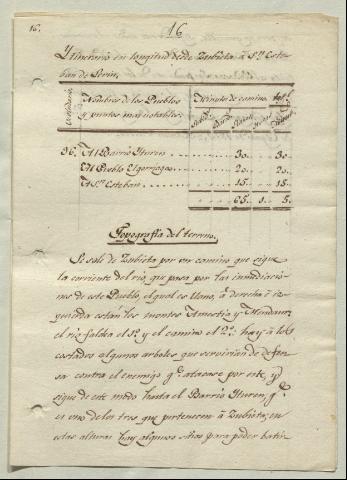 16.
16
Ytinerario en longitud desde Zubieta á Sn. Este-
ban de Lerin.
Nombres de los Pueblos
y puntos mas notables.
Minutos de camino.
36. Al Barrio Yturen . . . . . . . 30. . 30.
Al Pueblo Elgorriaga . . . . . . . 20. . 20.
A Sn. Esteban . . . . . . . 15. . 15.
65. 1. 5.
Topografía del terreno.
Se sale de Zubieta por un camino que sigue
la corriente del rio que pasa por las inmediacio-
nes de este Pueblo, el qual es llano, á derecha é iz-
quierda están los montes y Mendaur,
el rio faldea el 1º. y el camino el 2º. hay á los
costados algunos arboles que servirian de defen-
sa contra el enemigo q. atacase por este, y
sigue de este modo hasta el Barrio Yturen, q.
es uno de los tres que pertenecen á Zubieta; en
estas alturas hay algunos sitios para poder batir